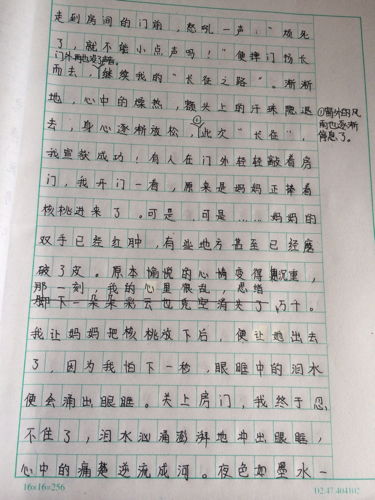 走到房间的门前，怒吼一声："烦死
了，就不能小点声吗！"便摔门扬长
门外再也没了声音。
而去，继续我的"长征之路"。渐渐
地，心中的燥热，额头上的汗珠隐退
①窗外的风
雨也逐渐
停息了。
去；身心逐渐放松，①此次"长征"，
我宣告成功！有人在门外轻轻敲着房
门，我开门一看，原来是妈妈正捧着
核桃进来了。可是，可是……妈妈的
双手已经红肿，有些地方甚至已经磨
破了皮。原本愉悦的心情变得沉重，
那一刻，我的心里很乱，思绪
脚下一朵朵彩云也凭空消失了，万千。
我让妈妈把核桃放下后，便让她出去
了，因为我怕下一秒，眼眶中的泪水
便会涌出眼眶。关上房门，我终于忍
不住了，泪水汹涌澎湃地冲出眼眶，
心中的痛楚逆流成河。夜色如墨水一
16×16=256
02.47.404102